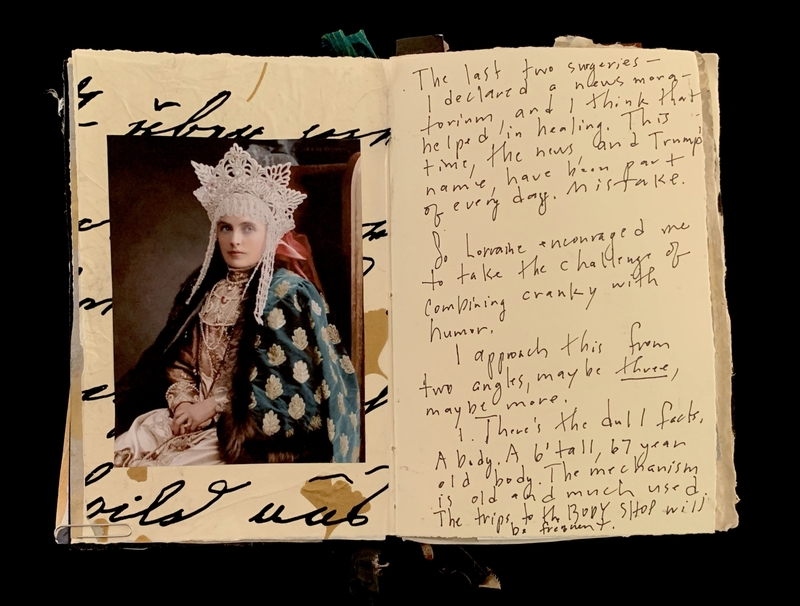 The last two surgeries –
I declared a news mora-
torium, and I think that
helped in healing. This
time, the news, and Trump
name, have been part
of every day. Mistake.
So Lorraine encouraged me
to take the challenge of
combining cranky with
humor.
I approach this from
two angles, maybe three,
maybe more.
1. There's the dull facts.
A body. A 6' tall, 67 year
old body. The mechanism
is old and much used.
The trips to the BODY SHOP will
be frequent.